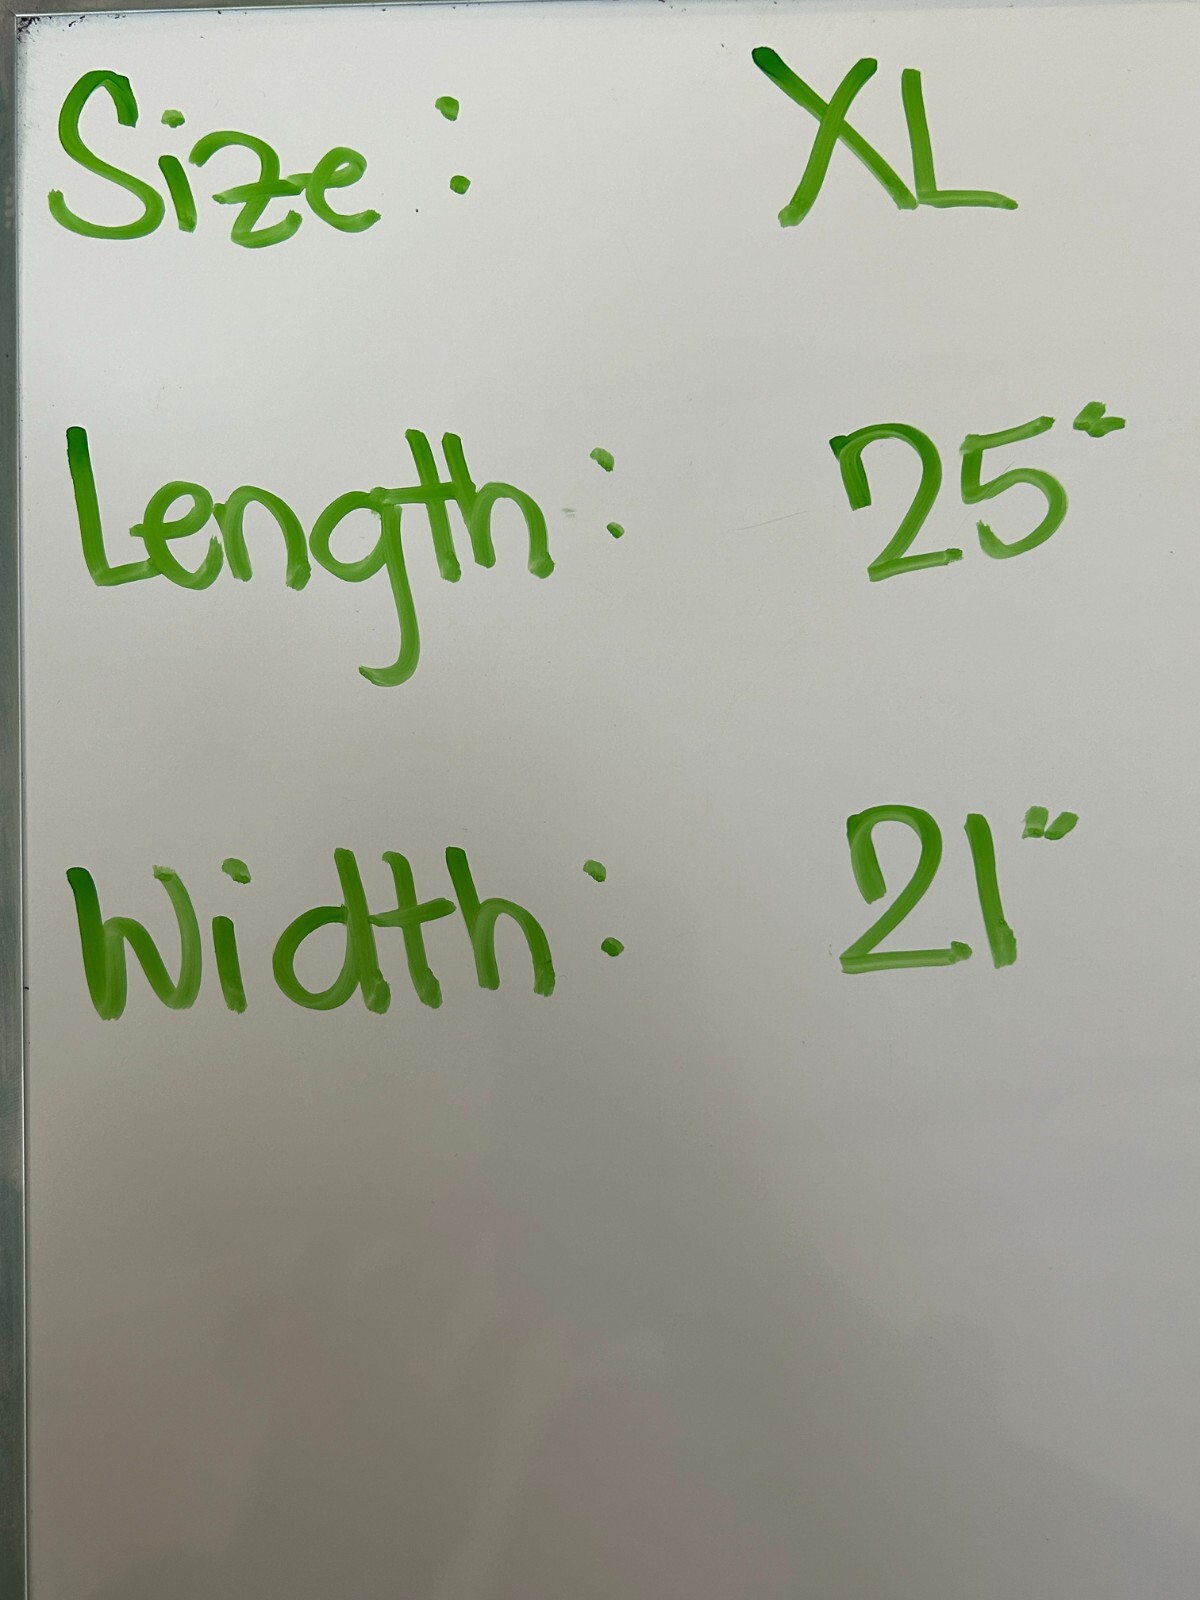 Size: XL
Length: 25"
Width: 21"